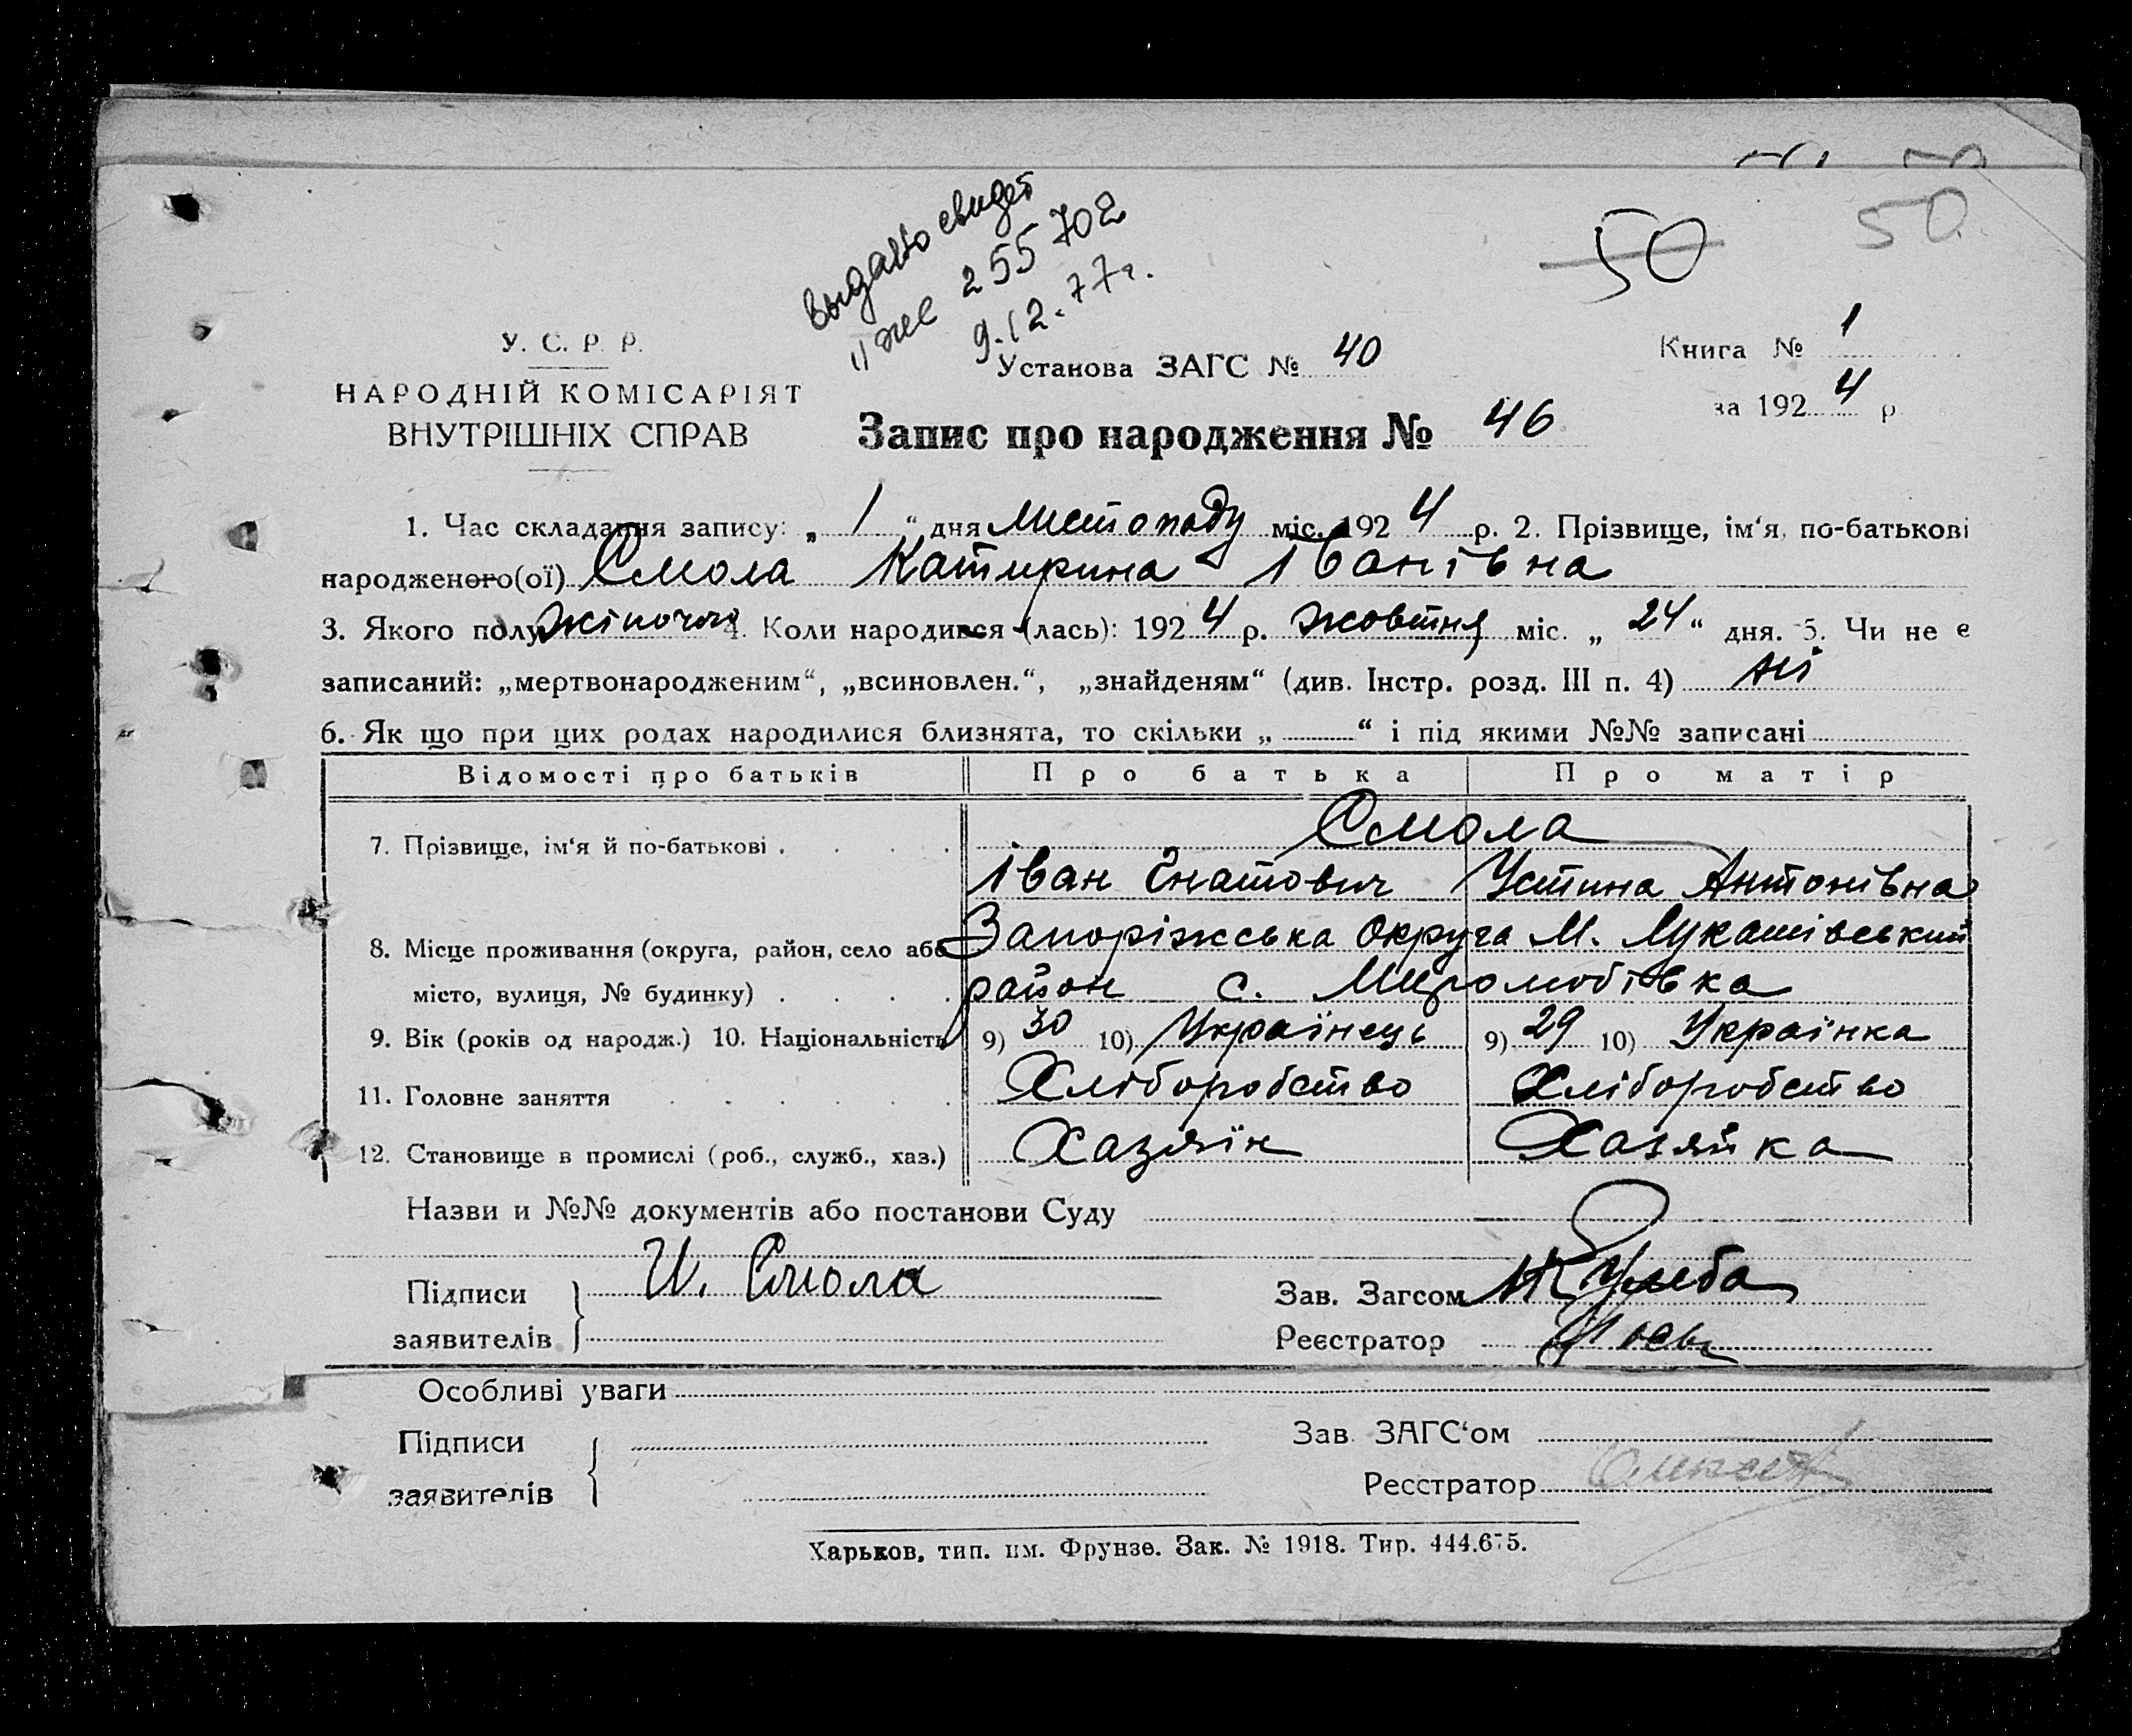 50
50
выдано свидет
II ЖС 255702
9.12.77г.
У. С. Р. Р.
НАРОДНІЙ КОМІСАРІЯТ
ВНУТРІШНІХ СПРАВ
Установа ЗАГС № 40
Книга № 1
за 1924 р
Запис про народження № 46
1. Час складання запису: „ 1 “ дня листопаду міс. 1924 р. 2. Прізвище, ім‘я, по-батькові
народженого(ої) Смола Катирина Іванівна
3. Якого полу жіночої 4. Коли народився (лась): 1924 р. жовтня міс. „ 24 “ дня. 5. Чи не є
записаний: „мертвонародженим“, „всиновлен.“, „знайденям“ (див. Інстр. розд. III п. 4) ні
6. Як що при цих родах народилися близнята, то скільки „ “ і під якими №№ записані
Відомості про батьків Про батька Про матір
7. Прізвище, ім‘я й по-батькові Смола
Іван Гнатович Устина Антонівна
8. Місце проживання (округа, район, село або Запоріжська округа М. Лукашівський
місто, вулиця, № будинку) район с. Миролюбівка
9. Вік (років од народж.) 10. Національність 9) 30 10) Українець 9) 29 10) Українка
11. Головне заняття Хліборобство Хліборобство
12. Становище в промислі (роб., служб., хаз.) Хазяїн Хазяйка
Назви и №№ документів або постанови Суду
Підписи И. Смола Зав. Загсом
заявителів Реєстратор
Особливі уваги
Підписи Зав. ЗАГС‘ом
заявителів Реєстратор
Харьков, тип. им. Фрунзе. Зак. № 1918. Тир. 444.675.